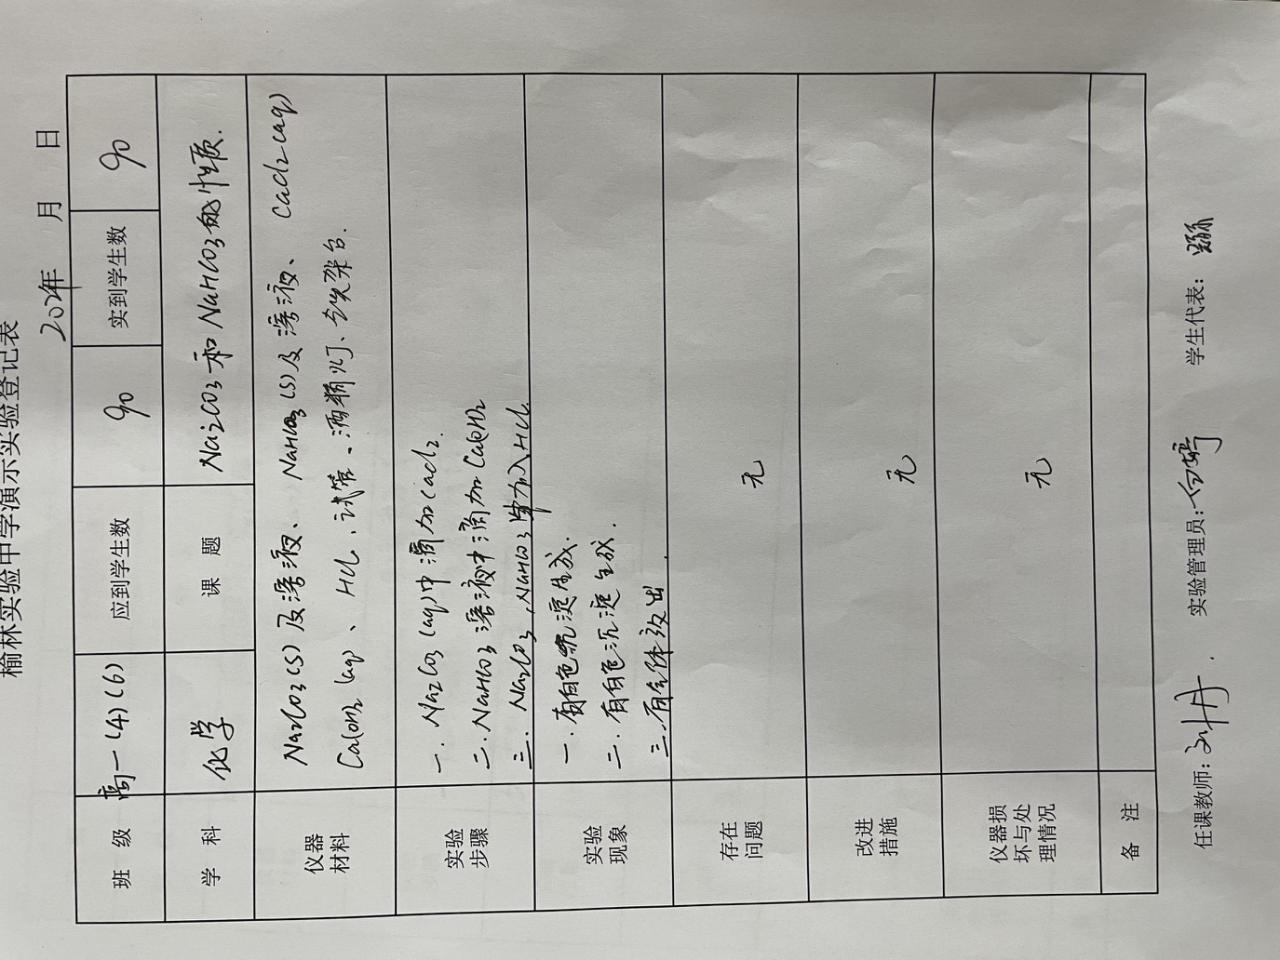 榆林实验中学演示实验登记表
202年 月 日
班 级 高一(4)(6) 应到学生数 90 实到学生数 90
学 科 化学 课 题 Na2CO3和NaHCO3的性质.
仪器材料 Na2CO3(s)及溶液、NaHCO3(s)及溶液、CaCl2(aq)
Ca(OH)2(aq)、HCl、试管、酒精灯、铁架台.
实验步骤 一.Na2CO3(aq)中滴加CaCl2.
二.NaHCO3溶液中滴加Ca(OH)2
三.Na2CO3,NaHCO3中加入HCl.
实验现象 一.有白色沉淀生成.
二.有白色沉淀生成.
三.有气体放出.
存在问题 无
改进措施 无
仪器损坏与处理情况 无
备 注
任课教师: 刘丹. 实验管理员: 白婷 学生代表: